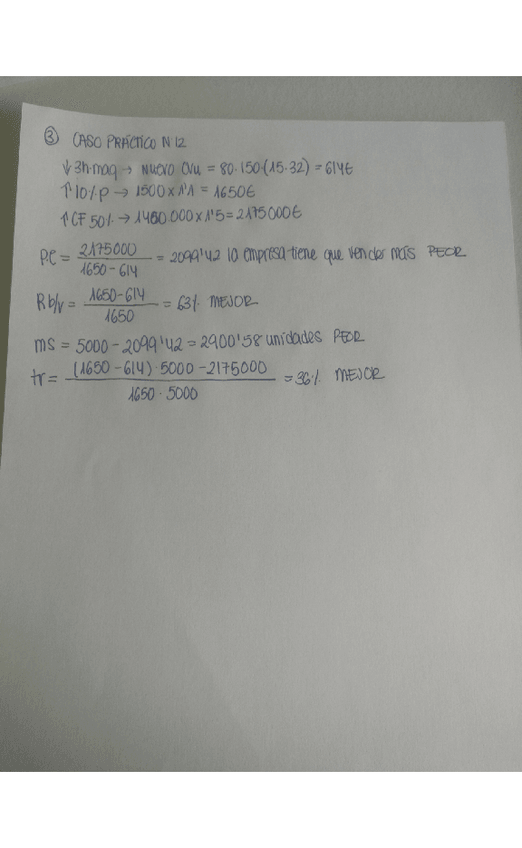 ③ CASO PRÁCTICO N 12
↓3h maq → NUEVO CVu = 80.150.(15.32) = 614€
↑10% P → 1500 x 1'1 = 1650€
↑CF 50% → 1450.000 x 1'5 = 2175000€
P.E = 2175000 / 1650 - 614 = 2099'42 la empresa tiene que vender más PEOR
R b/v = 1650-614 / 1650 = 63% MEJOR
ms = 5000 - 2099'42 = 2900'58 unidades PEOR
tr = (1650 - 614) · 5000 - 2175000 / 1650 · 5000 = 36% MEJOR